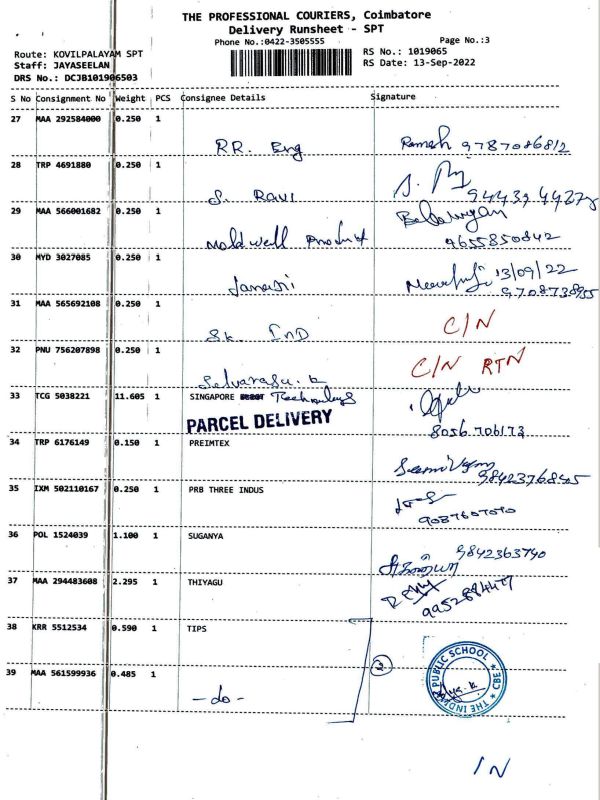 THE PROFESSIONAL COURIERS, Coimbatore
Delivery Runsheet - SPT
Phone No.:0422-3505555
Page No.:3
Route: KOVILPALAYAM SPT
RS No.: 1019065
Staff: JAYASEELAN
RS Date: 13-Sep-2022
DRS No.: DCJB101906503
S No Consignment No Weight PCS Consignee Details Signature
27 MAA 292584000 0.250 1
RR. Eng Ramesh 9787086812
28 TRP 4691880 0.250 1
S. Ravi
29 MAA 566001682 0.250 1
Moldwell Product 9655850842
30 MYD 3027085 0.250 1
Janasri 13/09/22
9708738955
31 MAA 565692108 0.250 1
C/N
Sk. IND
32 PNU 756207898 0.250 1
C/N RTN
Selvarasu. k
33 TCG 5038221 11.605 1 SINGAPORE Technology
PARCEL DELIVERY
8056 706173
34 TRP 6176149 0.150 1 PREIMTEX
9842376845
35 IXM 502110167 0.250 1 PRB THREE INDUS
36 POL 1524039 1.100 1 SUGANYA
9842363740
37 MAA 294483608 2.295 1 THIYAGU
38 KRR 5512534 0.590 1 TIPS
2
39 MAA 561599936 0.485 1
- do -
PUBLIC SCHOOL * CBE * THE
IN